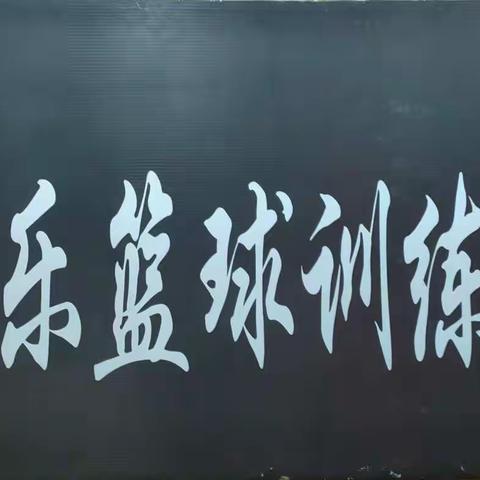 乐篮球训练